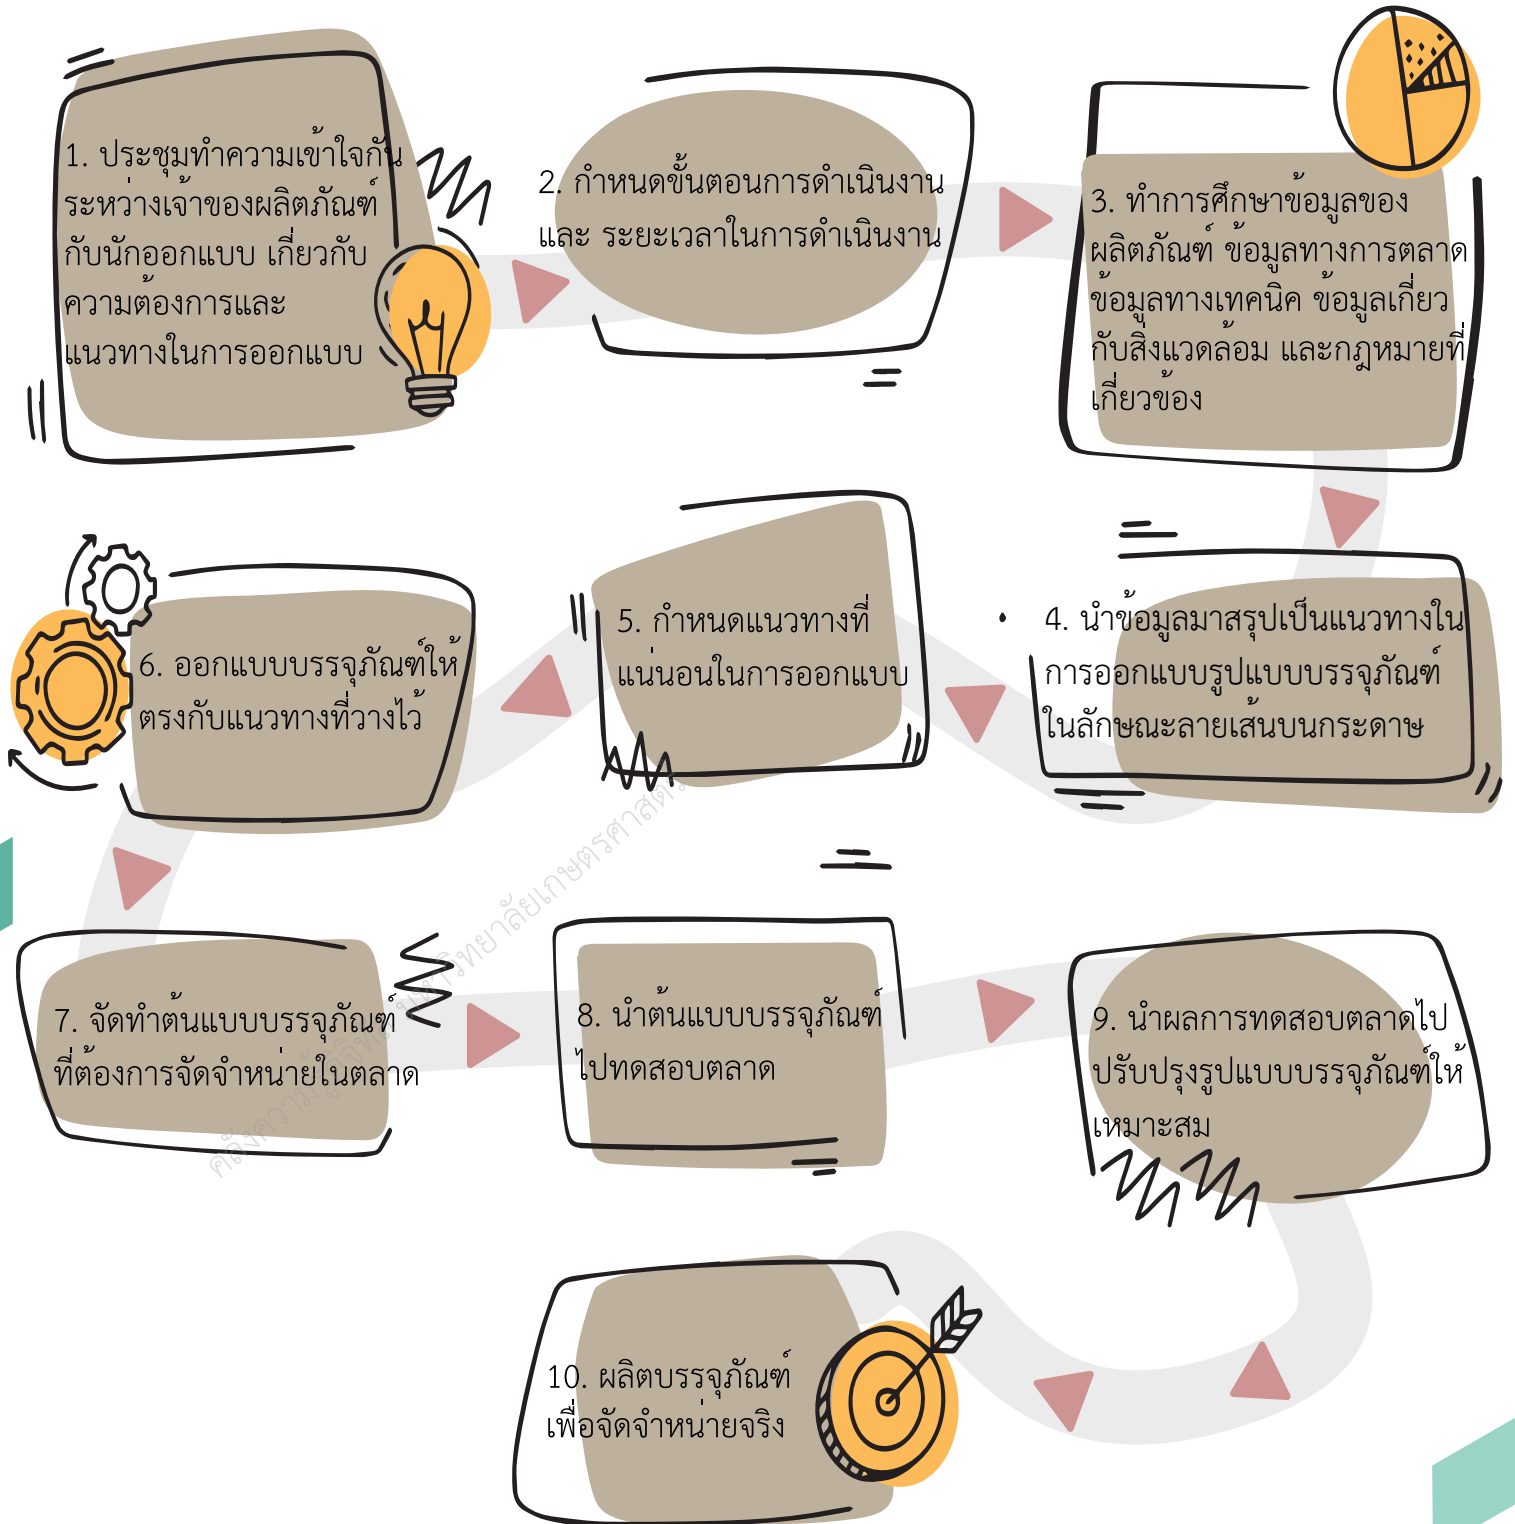 1. ประชุมทำความเข้าใจกัน
ระหว่างเจ้าของผลิตภัณฑ์
กับนักออกแบบ เกี่ยวกับ
ความต้องการและ
แนวทางในการออกแบบ
2. กำหนดขั้นตอนการดำเนินงาน
และ ระยะเวลาในการดำเนินงาน
3. ทำการศึกษาข้อมูลของ
ผลิตภัณฑ์ ข้อมูลทางการตลาด
ข้อมูลทางเทคนิค ข้อมูลเกี่ยว
กับสิ่งแวดล้อม และกฎหมายที่
เกี่ยวข้อง
• 4. นำข้อมูลมาสรุปเป็นแนวทางใน
การออกแบบรูปแบบบรรจุภัณฑ์
ในลักษณะลายเส้นบนกระดาษ
5. กำหนดแนวทางที่
แน่นอนในการออกแบบ
6. ออกแบบบรรจุภัณฑ์ให้
ตรงกับแนวทางที่วางไว้
7. จัดทำต้นแบบบรรจุภัณฑ์
ที่ต้องการจัดจำหน่ายในตลาด
8. นำต้นแบบบรรจุภัณฑ์
ไปทดสอบตลาด
9. นำผลการทดสอบตลาดไป
ปรับปรุงรูปแบบบรรจุภัณฑ์ให้
เหมาะสม
10. ผลิตบรรจุภัณฑ์
เพื่อจัดจำหน่ายจริง